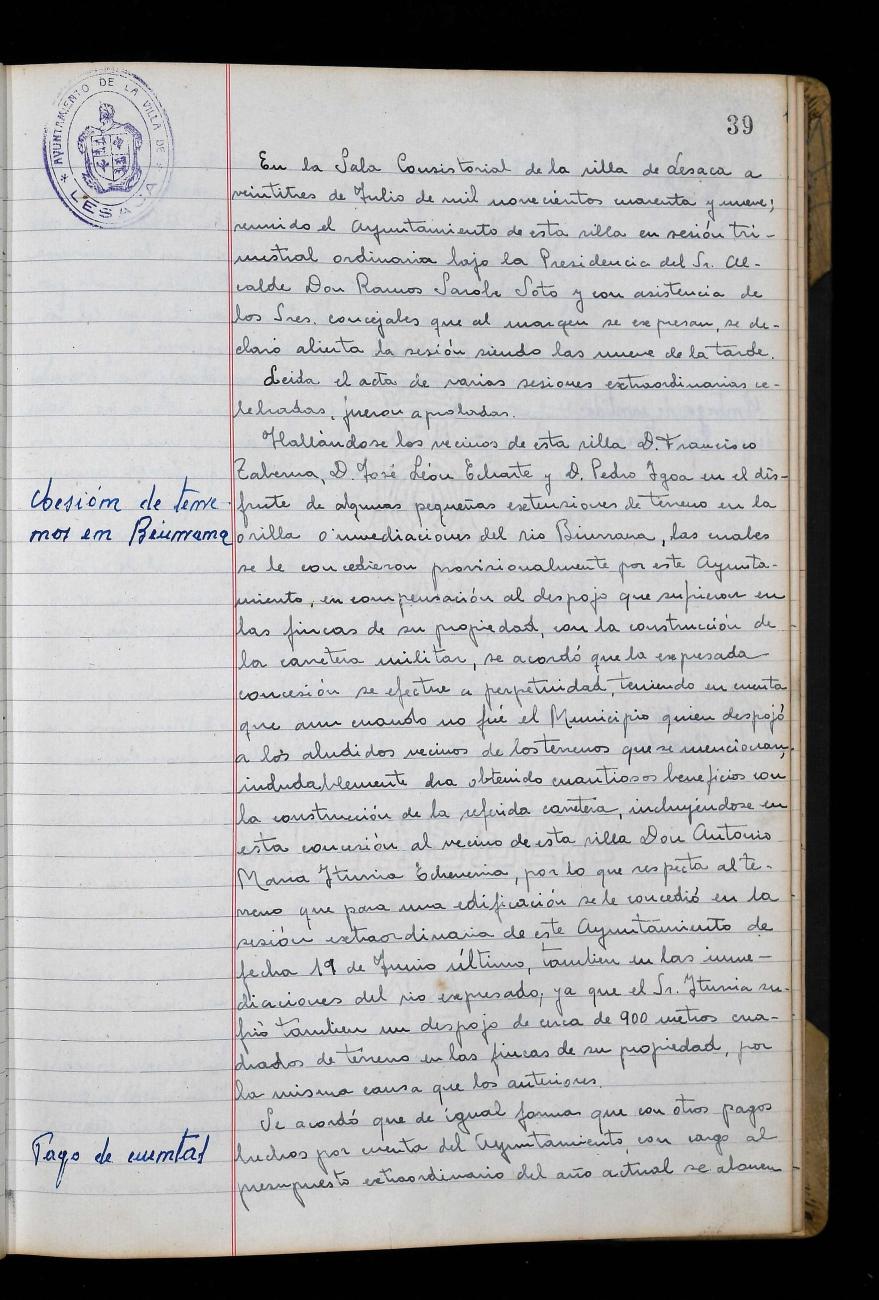 39
* AYUNTAMIENTO DE LA VILLA DE *
LESACA
En la Sala Consistorial de la villa de Lesaca a
veintitres de Julio de mil novecientos cuarenta y nueve;
reunido el Ayuntamiento de esta villa en sesión tri-
mestral ordinaria bajo la Presidencia del Sr. Al-
calde Don Ramos Sarobe Soto y con asistencia de
los Sres. concejales que al margen se expresan, se de-
claró abierta la sesión siendo las nueve de la tarde.
Leida el acta de varias sesiones extraordinarias ce-
lebradas, fueron aprobadas.
Hallándose los vecinos de esta villa D. Francisco
Taberna, D. José León Echarte y D. Pedro Igoa en el dis-
Cesión de terre-
nos en Biurrana
frute de algunas pequeñas extensiones de terreno en la
orilla o inmediaciones del rio Biurrana, las cuales
se le concedieron provisionalmente por este Ayunta-
miento, en compensación al despojo que sufrieron en
las fincas de su propiedad, con la construcción de
la carretera militar, se acordó que la expresada
concesión se efectue a perpetuidad, teniendo en cuenta
que aun cuando no fué el Municipio quien despojó
a los aludidos vecinos de los terrenos que se mencionan,
indudablemente ha obtenido cuantiosos beneficios con
la construcción de la referida carretera, incluyéndose en
esta concesión al vecino de esta villa Don Antonio
Maria Iturria Echeverria, por lo que respecta al te-
rreno que para una edificación se le concedió en la
sesión extraordinaria de este Ayuntamiento de
fecha 19 de Junio último, tambien en las inme-
diaciones del rio expresado, ya que el Sr. Iturria su-
frió tambien un despojo de cerca de 900 metros cua-
drados de terreno en las fincas de su propiedad, por
la misma causa que los anteriores.
Se acordó que de igual forma que con otros pagos
Pago de cuentas
hechos por cuenta del Ayuntamiento, con cargo al
presupuesto extraordinario del año actual se abonen